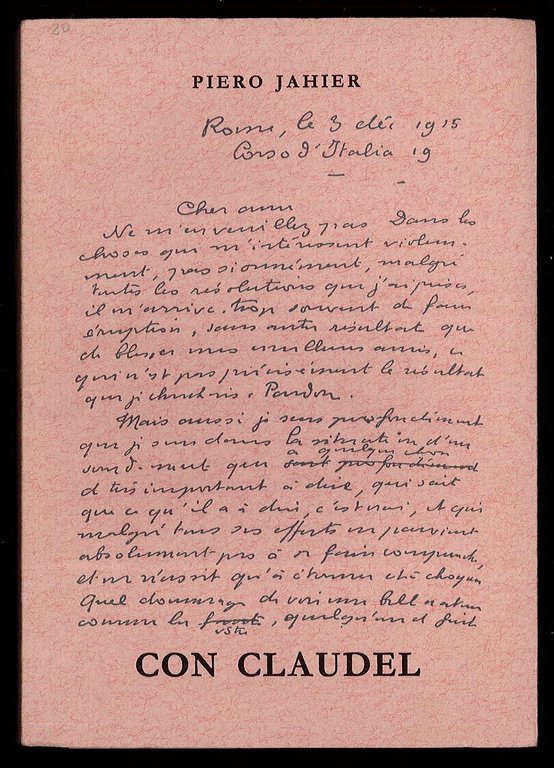 20
PIERO JAHIER
Rome, le 3 déc 1915
Corso d'Italia 19
Cher ami
Ne m'en veuillez pas Dans les
choses qui m'intéressent violem-
ment, passionnément, malgré
toutes les résolutions que j'ai prises,
il m'arrive trop souvent de faire
éruption, sans autre résultat que
de blesser mes meilleurs amis, ce
qui n'est pas précisément le résultat
que je cherchais. Pardon.
Mais aussi je sens profondément
que je suis dans la situation d'un
a quelque chose
sourd-muet qui sent profondément
et très important à dire, qui sait
que ce qu'il a à dire, c'est vrai, et qui
malgré tous ses efforts ne parvient
absolument pas à se faire comprendre,
et ne réussit qu'à étonner et à choquer
Quel dommage de voir une belle nature
comme la , quelqu'un et fait
vôtre
CON CLAUDEL